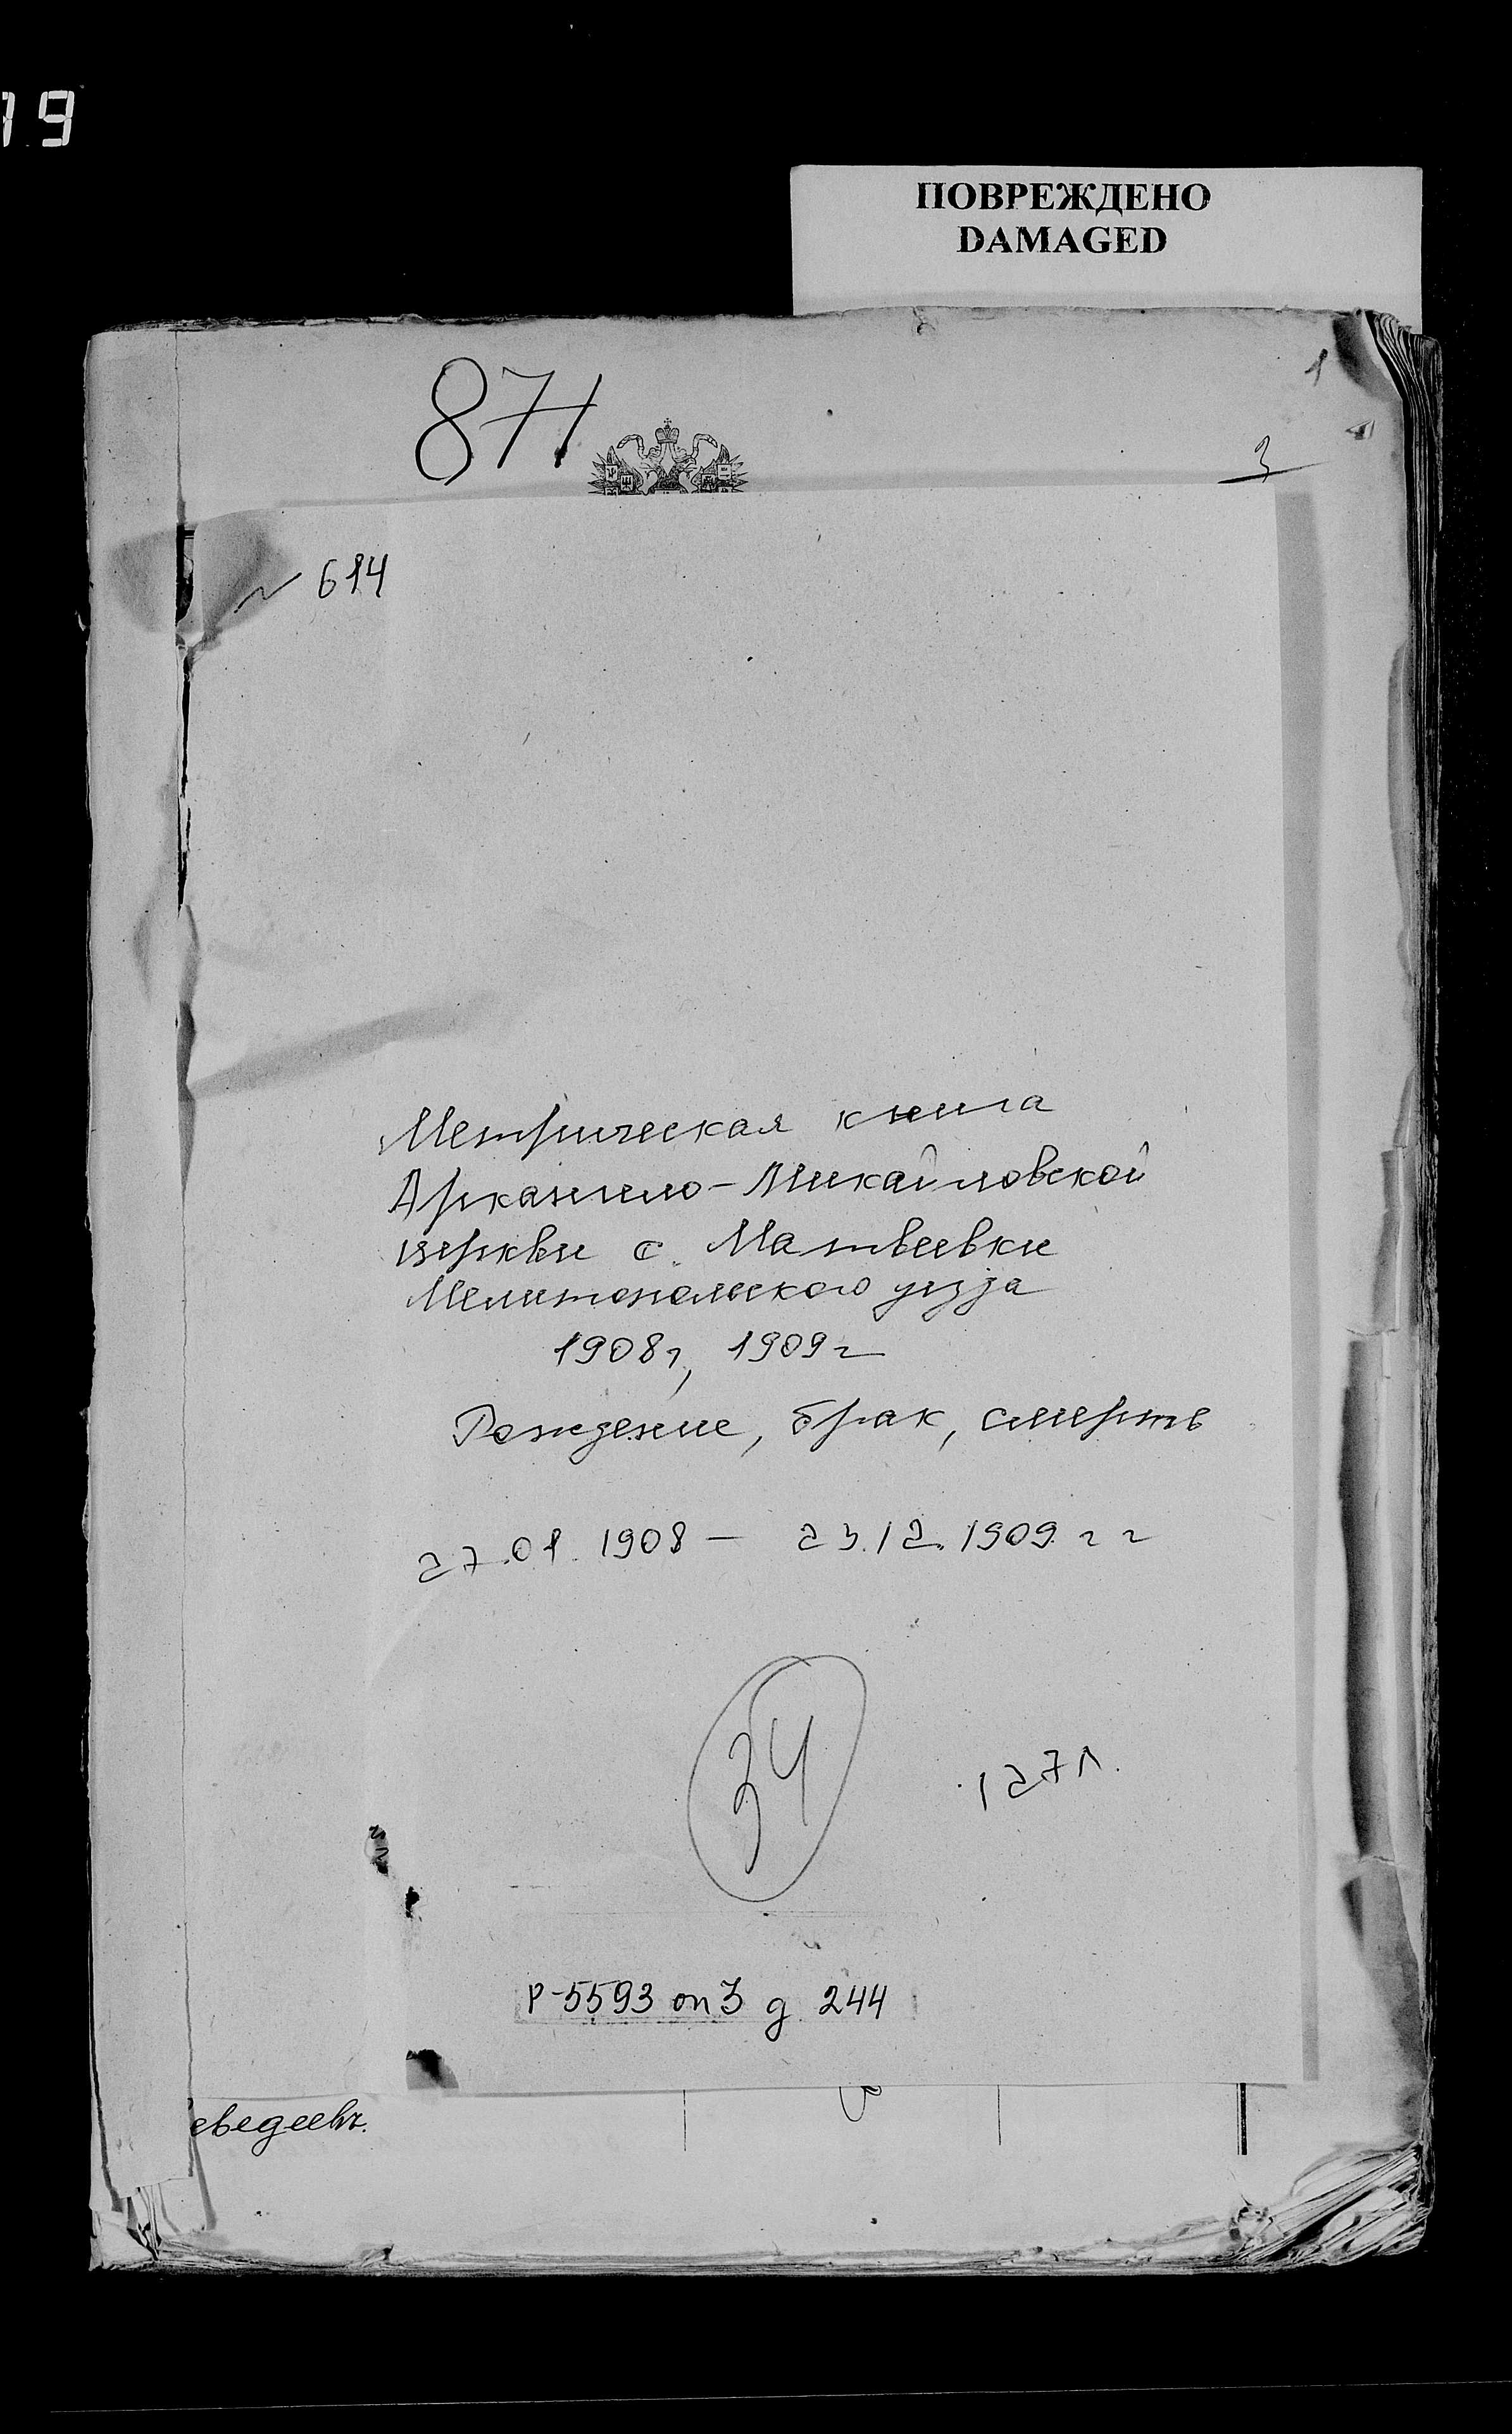 19
ПОВРЕЖДЕНО
DAMAGED
1
871
3
614
Метрическая книга
Архангело-Михайловской
церкви с. Матвеевки
Мелитопольского уезда
1908г, 1909г
Рождение, брак, смерть
27.01.1908 - 23.12.1909 г г
34
127л.
Р-5593 оп 3 д 244
еведеевъ.